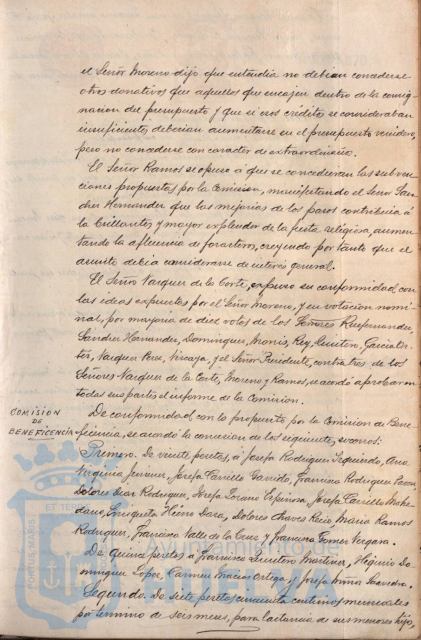 el Señor Moreno dijo que entendia no debian concederse
otros donativos que aquellos que encajen dentro de la consig-
nacion del presupuesto y que si esos créditos se consideraban
insuficientes deberian aumentarse en el presupuesto venidero,
pero no concederse con caracter de extraordinario.
El Señor Ramos se opuso a que se concedieran las subven-
ciones propuestas por la Comision, manifestando el Señor San-
chez Hernandez que las mejorias de los pasos contribuia á
la brillantez y mayor explendor de la fiesta religiosa, aumen-
tando la afluencia de forasteros, creyendo por tanto que el
asunto debia considerarse de interés general.
El Señor Vazquez de la Corte, expuso su conformidad con
las ideas expuestas por el Señor Moreno, y en votacion nomi-
nal, por mayoria de diez votos de los Señores Ruifernandez,
Sanchez Hernandez, Dominguez, Monis, Rey, Quintero,
Vazquez Perez, Vizcaya, y el Señor Presidente, contra tres de los
Señores Vazquez de la Corte, Moreno y Ramos, se acordó aprobar en
todas sus partes el informe de la Comision.
COMISION
DE
BENEFICENCIA
De conformidad con lo propuesto por la Comision de Bene-
ficencia, se acordó la concesion de los siguientes, socorros:
Primero. De veinte pesetas, á Josefa Rodriguez Izquierdo, Ana
Virginia Jimenez, Josefa Carrillo Garrido, Francisca Rodriguez
Dolores Diaz Rodriguez, Josefa Lozano Espinosa, Josefa Carrillo
Enriqueta Hierro Daza, Dolores Chaves Recio, Maria Ramos
Rodriguez, Francisca Valle de la Cruz y Francisca Tomer Vergara.
De quince pesetas á Francisco Quintero Martinez, Higinio Do-
minguez Lopez, Carmen Macias Ortega y Josefa
Segundo. De siete pesetas cincuenta centimos mensuales
por termino de seis meses, para lactancia de sus menores hijos,
PORTUS MARIS
ET TER
Ayuntamiento de